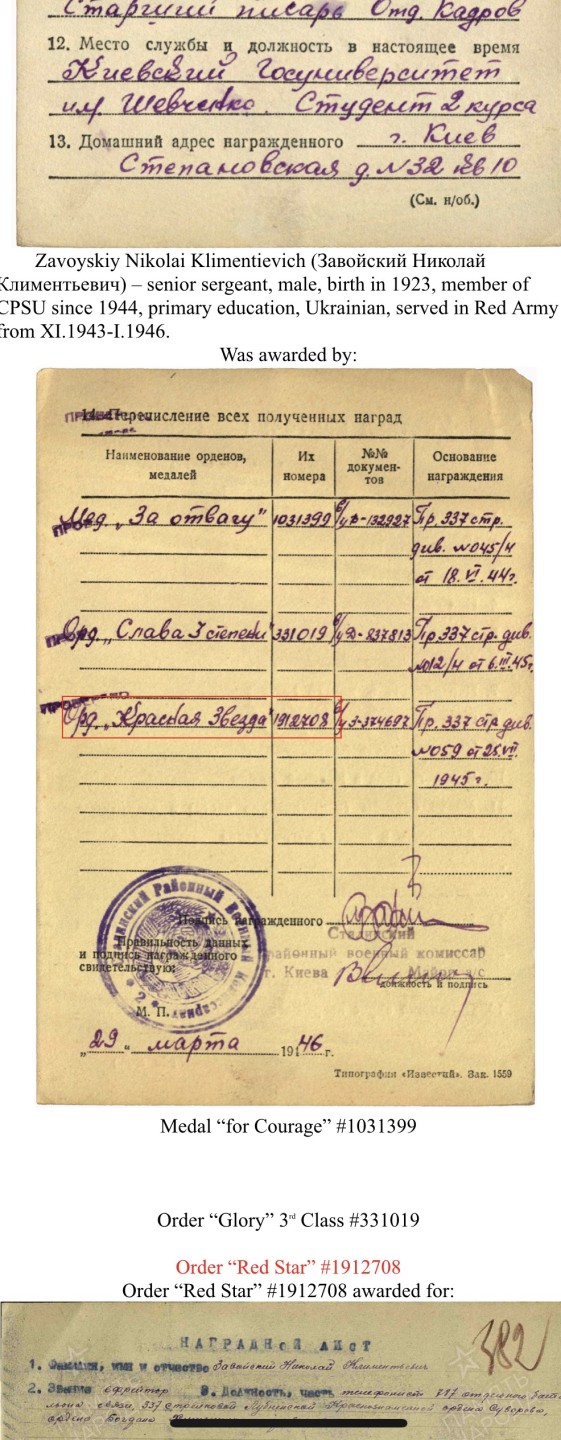 Старший писарь Отд. Кадров
12. Место службы и должность в настоящее время
Киевский Госуниверситет
им. Шевченко. Студент 2 курса
13. Домашний адрес награжденного г. Киев
Степановская д. №32 кв 10
(См. н/об.)
Zavoyskiy Nikolai Klimentievich (Завойский Николай
Климентьевич) – senior sergeant, male, birth in 1923, member of
CPSU since 1944, primary education, Ukrainian, served in Red Army
from XI.1943-I.1946.
Was awarded by:
14. Перечисление всех полученных наград
Наименование орденов, медалей
Их номера
№№ докумен-тов
Основание награждения
Мед. „За отвагу" 1031399 б/у Д-132927 Пр. 337 стр.
див. №045/н
от 18.VI.44г.
Орд. „Слава 3 степени" 331019 б/у Д-837813 Пр. 337 стр. див.
№012/н от 6.III.45г.
ПРОВЕРЕНО
Орд. „Красная Звезда" 1912708 б/у З-374697 Пр. 337 стр див.
№059 от 25.VII.
1945г.
Подпись награжденного
Сталинский
Правильность данных
и подпись награжденного
свидетельствую:
районный военный комиссар
г. Киева Майор а/с
должность и подпись
М. П.
„29" марта 1946 г.
Типография «Известий». Зак. 1559
Medal “for Courage” #1031399
Order “Glory” 3rd Class #331019
Order “Red Star” #1912708
Order “Red Star” #1912708 awarded for:
НАГРАДНОЙ ЛИСТ
382
1. Фамилия, имя и отчество Завойский Николай Климентьевич
2. Звание ефрейтор 3. Должность, часть телефонист 797 отдельного баталь-
льона связи, 337 стрелковой Лубненской Краснознаменной ордена Суворова,
ордена Богдана